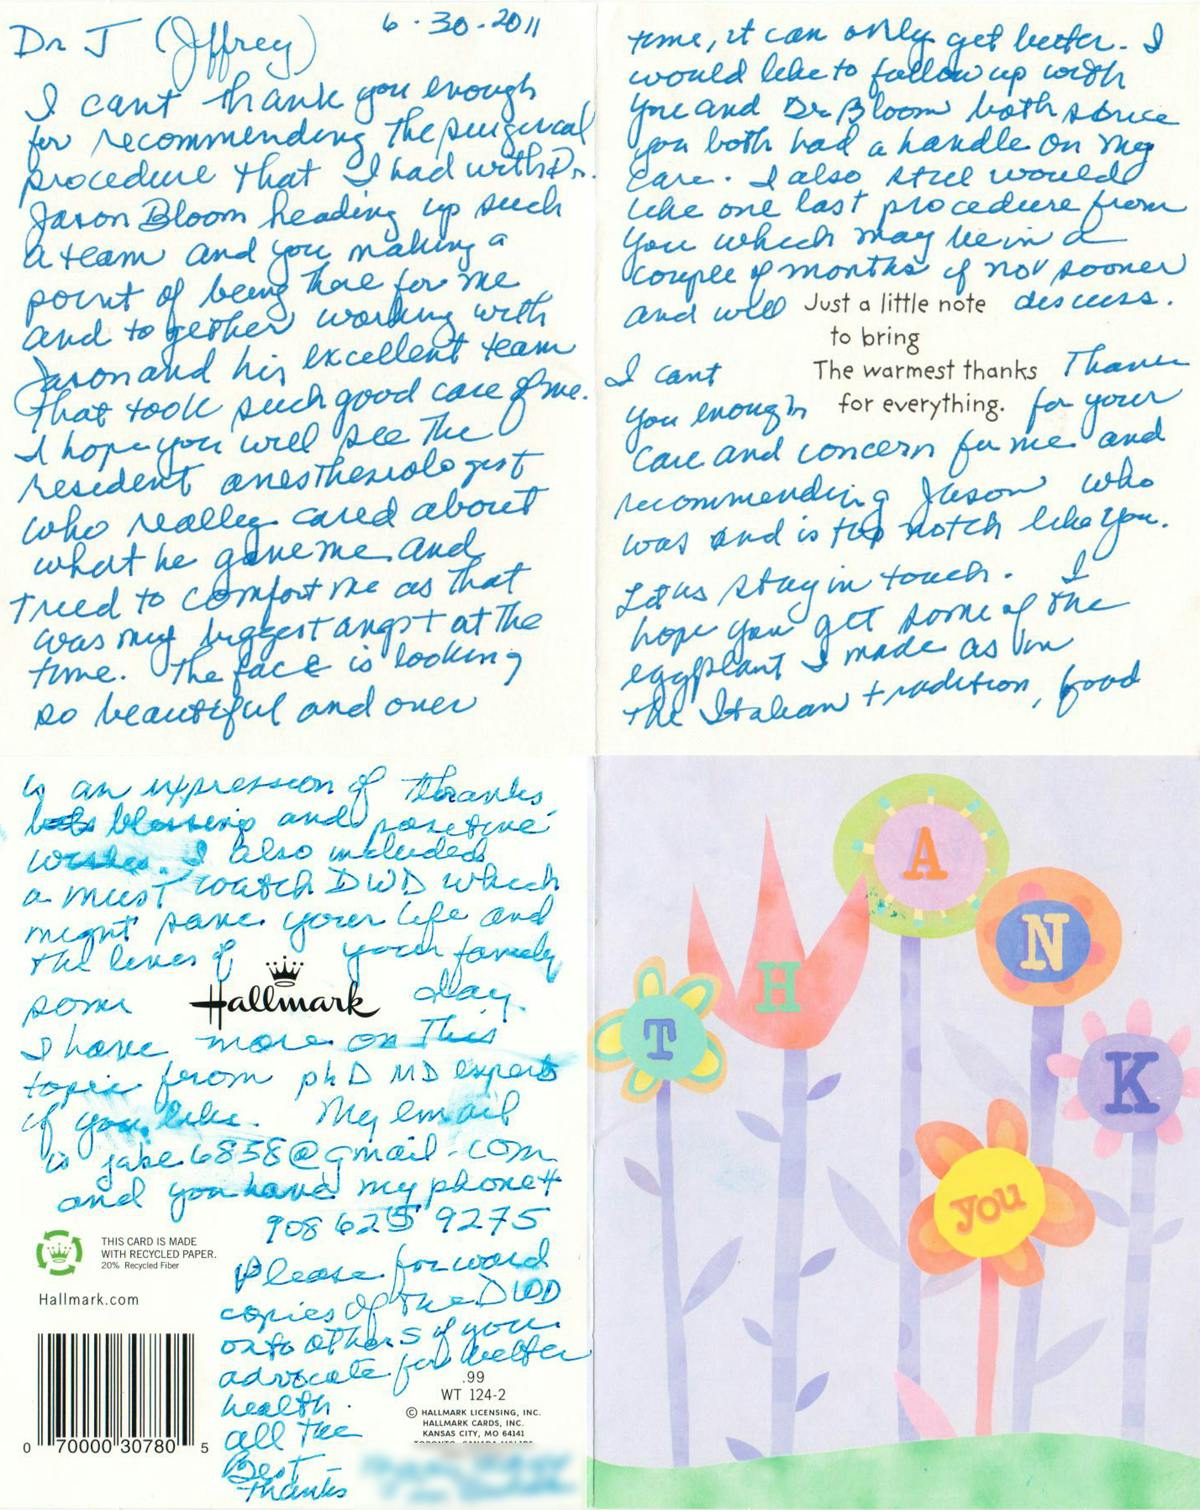 6·30·2011
Dr J (Jffrey)
I cant thank you enough
for recommending the surgical
procedure that I had with Dr.
Jason Bloom heading up such
a team and you making a
point of being there for me
and together working with
Jason and his excellent team
that took such good care of me.
I hope you will see the
resident anesthesiologist
who really cared about
what he gave me and
tried to comfort me as that
was my biggest angst at the
time. The face is looking
so beautiful and over
time, it can only get better. I
would like to follow up with
you and Dr Bloom both since
you both had a handle on my
care. I also still would
like one last procedure from
you which may be in a
couple of months if not sooner
and will discuss.
Just a little note
to bring
The warmest thanks
for everything.
I cant Thank
you enough for your
care and concern for me and
recommending Jason who
was and is top notch like you.
Let us stay in touch. I
hope you get some of the
eggplant I made as in
the Italian tradition, food
is an expression of thanks
blessing and positive
wishes. I also included
a must watch DVD which
might save your life and
the lives of your family
some day.
Hallmark
I have more on this
topic from phD MD experts
if you like. My email
is jake6858@gmail.com
and you have my phone#
908 625 9275
Please forward
copies of the DVD
onto others if you
advocate for better
health.
all The
Best -
thanks
THIS CARD IS MADE
WITH RECYCLED PAPER.
20% Recycled Fiber
Hallmark.com
0 70000 30780 5
.99
WT 124-2
© HALLMARK LICENSING, INC.
HALLMARK CARDS, INC.
KANSAS CITY, MO 64141
THANK
you